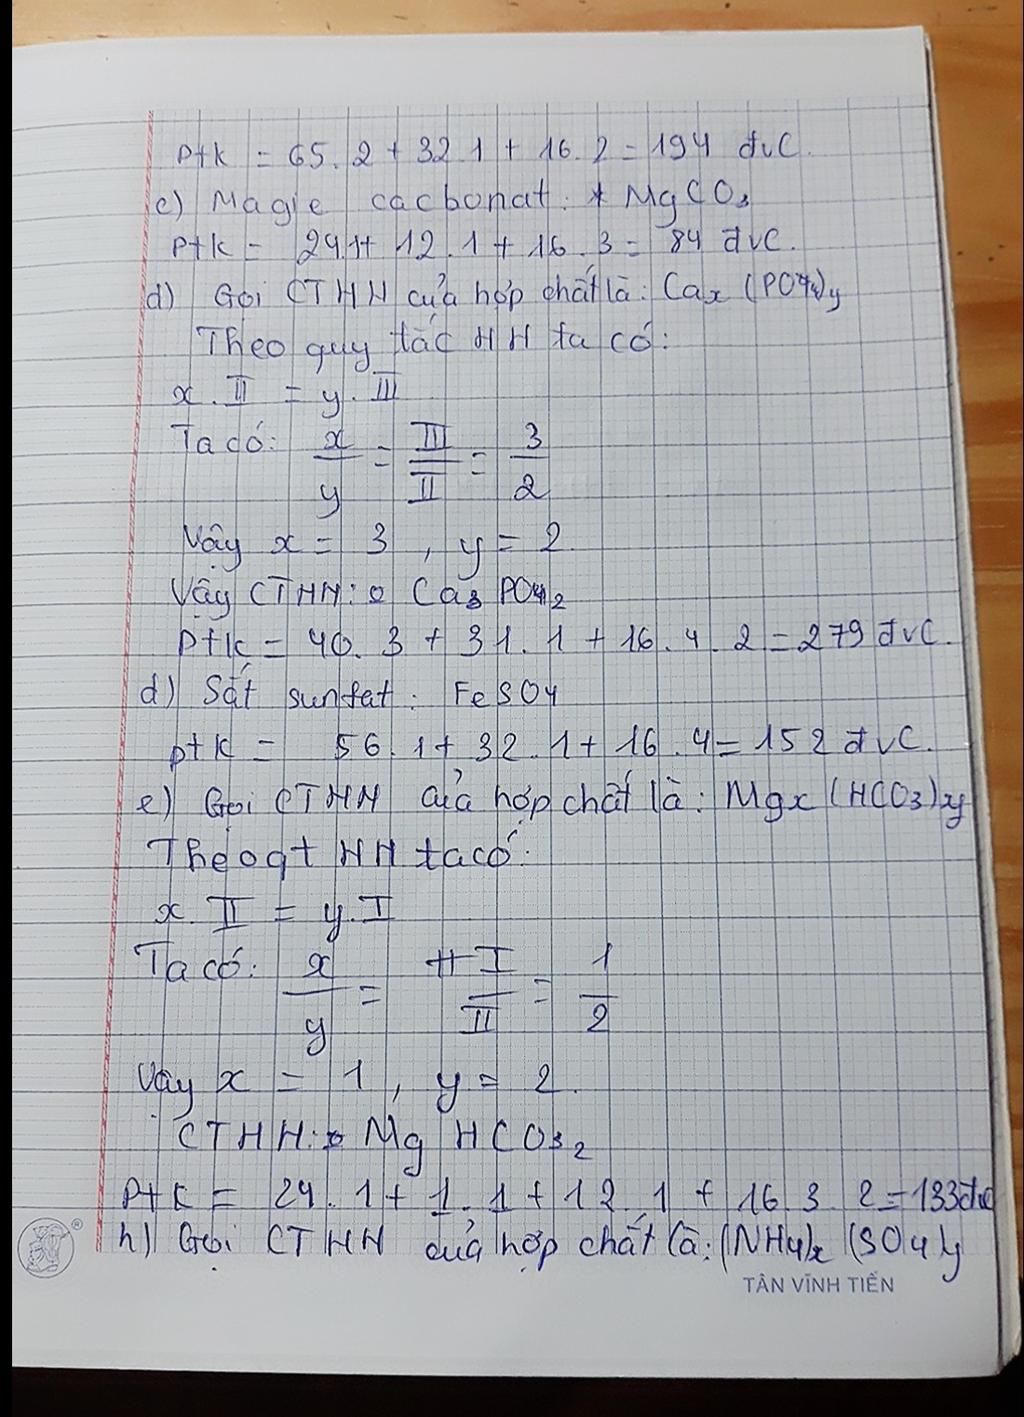 PtK = 65.2 + 32.1 + 16.2 = 194 đvC.
c) Magie cacbonat: * MgCO3
PtK = 24.1+ 12.1 + 16.3 = 84 đvC.
d) Gọi CTHH của hợp chất là: Cax (PO4)y
Theo quy tắc HH ta có:
x. II = y. III
Ta có: x/y = III/II = 3/2
Vậy x = 3, y = 2
Vậy CTHH: Ca3 PO42
PtK = 40.3 + 31.1 + 16.4.2 = 279 đvC.
d) Sắt sunfat: FeSO4
ptK = 56.1 + 32.1 + 16.4 = 152 đvC.
e) Gọi CTHH của hợp chất là: Mgx (HCO3)y
Theo qt HH ta có:
x. II = y. I
Ta có: x/y = I/II = 1/2
Vậy x = 1, y = 2.
CTHH: Mg HCO32
PtK = 24.1 + 1.1 + 12.1 + 16.3.2 = 133đvC
h) Gọi CTHH của hợp chất là: (NH4)x (SO4)y
®
TÂN VĨNH TIẾN